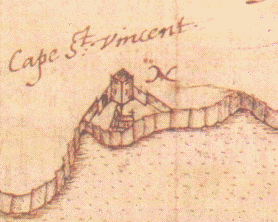 Cape St. Vincent.